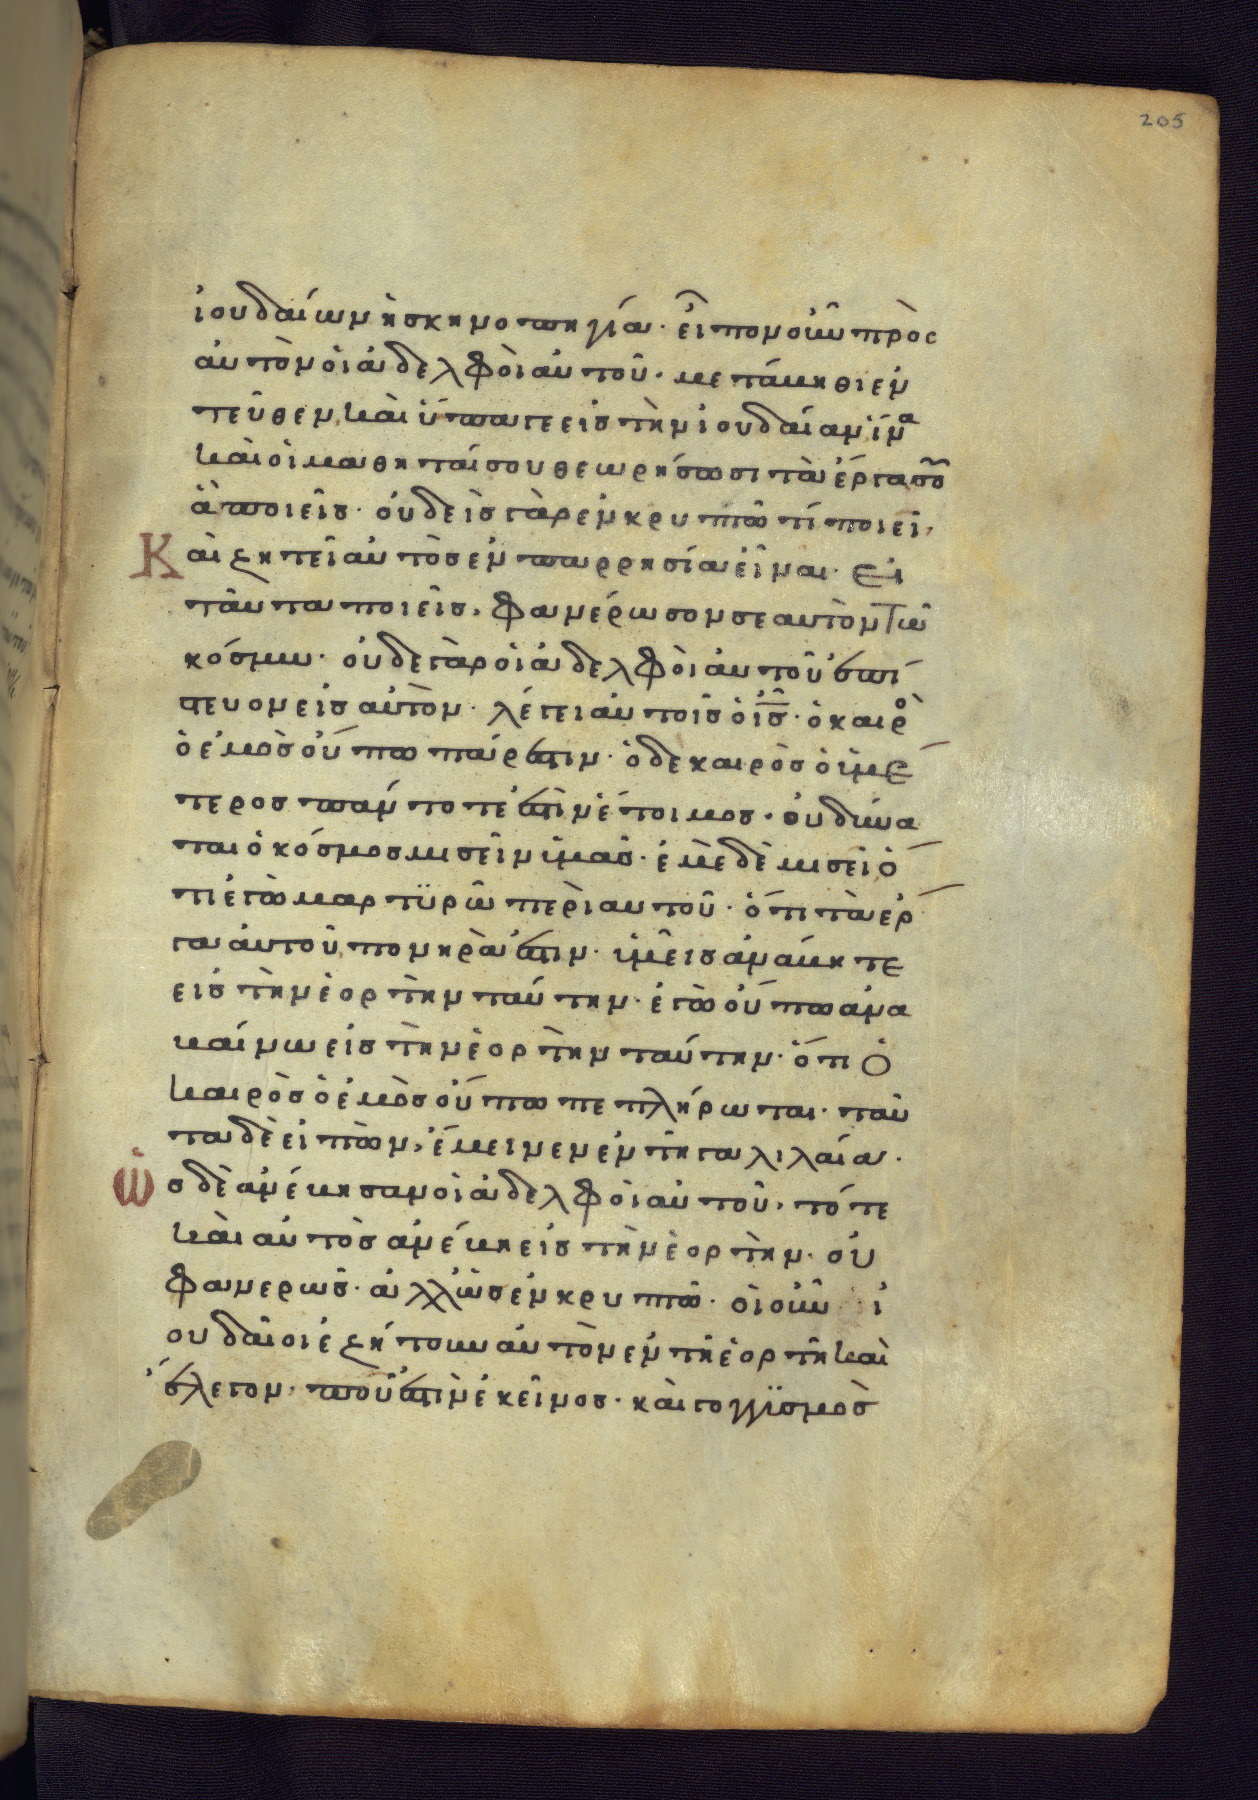 205
ἰουδαίων ἡ σκηνοπηγία· εἶπον οὖν πρὸς
αὐτὸν οἱ ἀδελφοὶ αὐτοῦ· μετάβηθι ἐν
τεῦθεν, καὶ ὕπαγε εἰς τὴν ἰουδαίαν ἵνα
καὶ οἱ μαθηταί σου θεωρήσωσι τὰ ἔργα σοῦ
ἃ ποιεῖς· οὐδεὶς γὰρ ἐν κρυπτῶ τί ποιεῖ,
Καὶ ζητεῖ αὐτὸς ἐν παρρησία εἶναι· Εἰ
ταῦτα ποιεῖς, φανέρωσον σεαυτὸν τῶ
κόσμω· οὐδὲ γὰρ οἱ ἀδελφοὶ αὐτοῦ ἐπί
στευον εἰς αὐτὸν· λέγει αὐτοῖς ὁ ι̅ς̅· ὁ καιρὸ
ὁ ἐμὸς οὔπω πάρεστιν· ὁ δὲ καιρὸς ὁ ὑμέ
τερος πάντοτέ ἐστιν ἕτοιμος· οὐ δύνα
ται ὁ κόσμος μισεῖν ὑμᾶς· ἐμὲ δὲ μισεῖ ὅ
τι ἐγὼ μαρτϋρῶ περὶ αὐτοῦ· ὅτι τὰ ἔρ
γα αὐτοῦ, πονηρὰ ἐστιν· ὑμεῖς ἀνάβητε
εἰς τὴν ἑορτὴν ταύτην· ἐγὼ οὔπω ἀνα
βαίνω εἰς τὴν ἑορτὴν ταύτην· ὅτι ὁ
καιρὸς ὁ ἐμὸς οὔπω πεπλήρωται· ταῦ
τα δὲ εἰπὼν, ἔμεινεν ἐν τῆ γαλιλαία·
ὡς δὲ ἀνέβησαν οἱ ἀδελφοὶ αὐτοῦ, τότε
καὶ αὐτὸς ἀνέβη εἰς τὴν ἑορτὴν· οὐ
φανερῶς· ἀλλ' ὡς ἐν κρυπτῶ· οἱ οὖν ἰ
ουδαῖοι ἐζήτουν αὐτὸν ἐν τῆ ἑορτῆ καὶ
ἔλεγον· ποῦ ἐστὶν ἐκεῖνος· καὶ γογγϋσμὸς